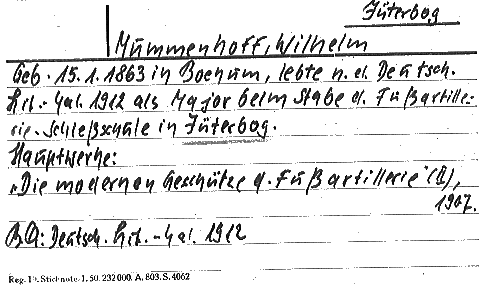 Jüterbog
Mummenhoff, Wilhelm
Geb. 15.1.1863 in Bochum, lebte n. d. Deutsch.
Lit.-Kal. 1912 als Major beim Stabe d. Fußartille-
rie-Schießschule in Jüterbog.
Hauptwerke:
„Die modernen Geschütze d. Fußartillerie" (II),
1907.
BQ: Deutsch. Lit.-Kal. 1912
Reg. Stichnote. 1. 50. 232000. A. 803. S. 4062